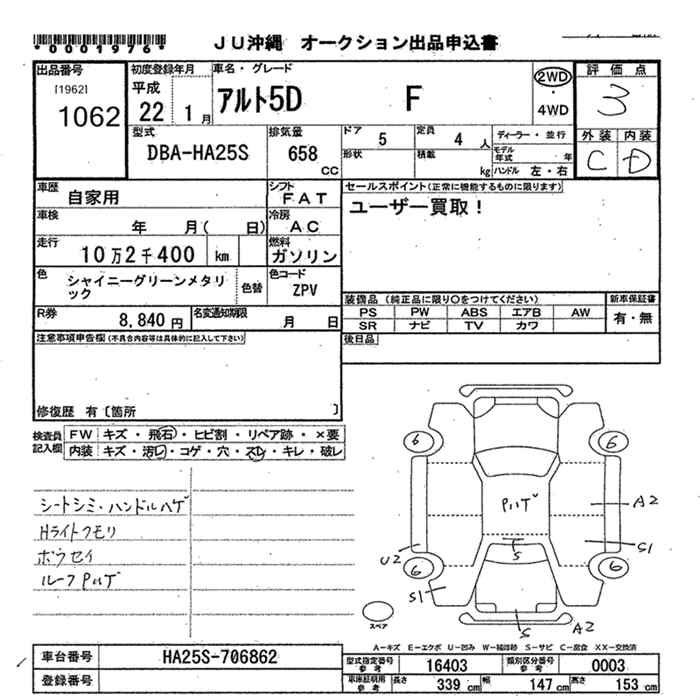 *0001976*
JU沖縄 オークション出品申込書
出品番号
[1962]
1062
初度登録年月
平成
22 1月
車名・グレード
アルト5D F
2WD
・
4WD
評価点
3
外装 内装
C D
型式
DBA-HA25S
排気量
658
CC
ドア 5
形状
定員 4 人
積載 kg
ディーラー・並行
モデル年式 年
ハンドル 左・右
車歴
自家用
シフト
FAT
セールスポイント(正常に機能するものに限ります)
ユーザー買取!
車検
年 月( 日)
冷房
AC
走行
10万2千400 km
燃料
ガソリン
色
シャイニーグリーンメタリック
色替
色コード
ZPV
装備品(純正品に限り○をつけてください)
PS PW ABS エアB AW
SR ナビ TV カワ
新車保証書
有・無
R券
8,840円
名変通知期限
月 日
後日品
注意事項申告欄(不具合内容等は具体的に記入して下さい)
修復歴 有〔箇所 〕
検査員記入欄
FW キズ・飛石・ヒビ割・リペア跡・×要
内装 キズ・汚レ・コゲ・穴・スレ・キレ・破レ
シートシミ・ハンドルハゲ
Hライトクモリ
ボウセイ
ルーフPハゲ
6 6
Pハゲ
A2
S
S1
U2
6 6
S1
S
A2
スペア
A-キズ E-エクボ U-凹み S-サビ C-腐食 XX-交換済
車台番号
HA25S-706862
登録番号
型式指定番号
参考
16403
類別区分番号
参考
0003
車庫証明用
参考
長さ 339 cm 幅 147 cm 高さ 153 cm